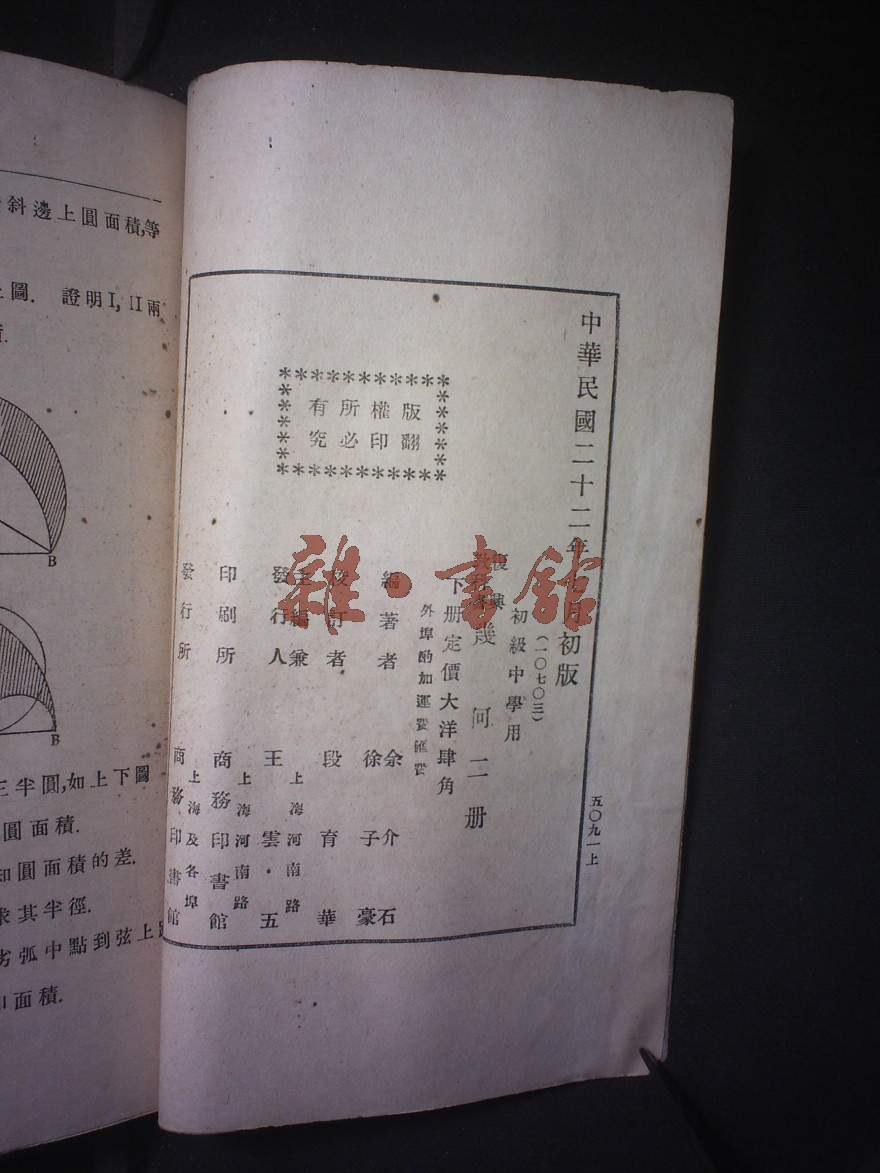 斜邊上圓面積,等
上圖. 證明I, II兩
B
B
三半圓,如上下圖
圓面積.
圓面積的差.
求其半徑.
劣弧中點到弦上
面積.
中華民國二十二年 月初版
(一〇七〇三)
初級中學用
復興
教科書
幾何二册
下册定價大洋肆角
外埠酌加運費匯費
版權所有
翻印必究
編著者 余介石
徐子豪
校訂者 段育華
主編兼
發行人 王雲五
上海河南路
印刷所 商務印書館
上海河南路
發行所 商務印書館
上海及各埠
五〇九一上
雜·書館